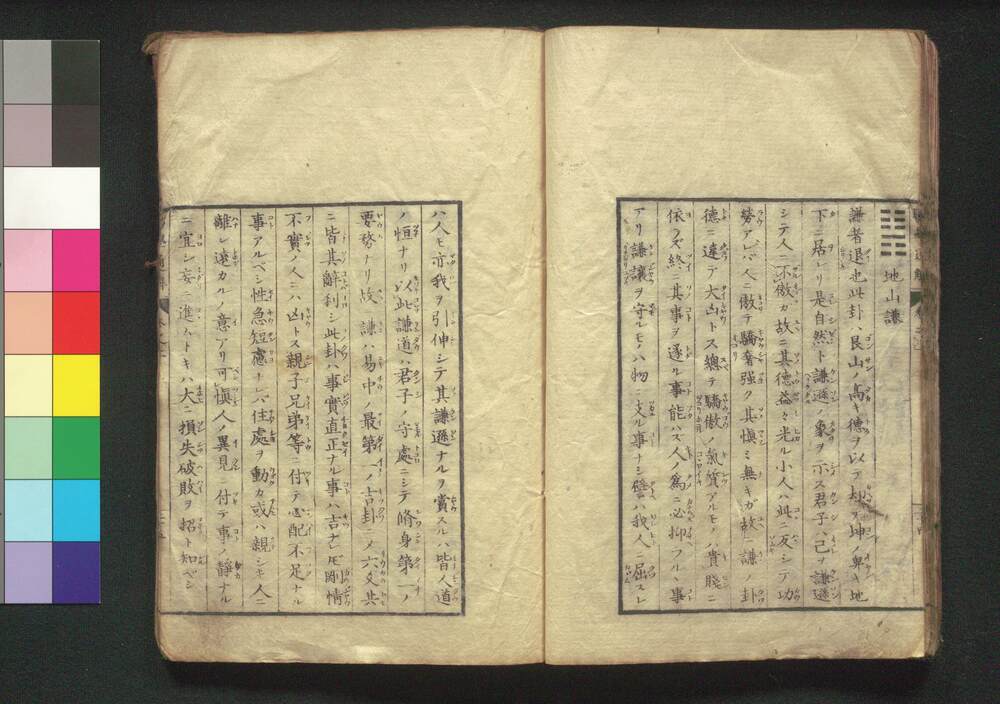 ䷎ 地山謙
謙者退也此卦ハ艮山ノ高キ德ヲ以テ却ヲ坤ノ卑キ地
下ニ居レリ是自然ト謙遜ノ象ヲ示ス君子ハ己ヲ謙遜
シテ人ニ不傲カ故ニ其德益々光ル小人ハ此ニ反シテ功
勞アレバ人ニ傲テ驕奢强ク其愼ミ無キガ故ニ謙ノ卦
德ニ違テ大凶トス總テ驕傲ノ氣質アルモノハ貴賤ニ
依ラズ終ニ其事ヲ遂ル事能ハズ人ノ爲ニ必抑フルヽ事
アリ謙讓ヲ守ルモノハ物ニ支ル事ナシ譬ハ我人ニ屈スレ
ハ人モ亦我ヲ引伸シテ其謙遜ナルヲ賞スルハ皆人道
ノ恒ナリ以此謙道ハ君子ノ守處ニシテ脩身第一ノ
要務ナリ故ニ謙ハ易中ノ最第一ノ吉卦ニメ六爻共
ニ皆其辭利シ此卦ハ事實直正ナル事ハ吉ナレ𪜈剛情
不實ノ人ニハ凶トス親子兄弟等ニ付テ心配不足ナル
事アルベシ性急短慮ナレバ住處ヲ動カ或ハ親シキ人ニ
離レ遠カルノ意アリ可愼人ノ異見ニ付テ事ノ靜ナル
ニ宜シ妄ニ進ムトキハ大ニ損失破敗ヲ招ト知ベシ